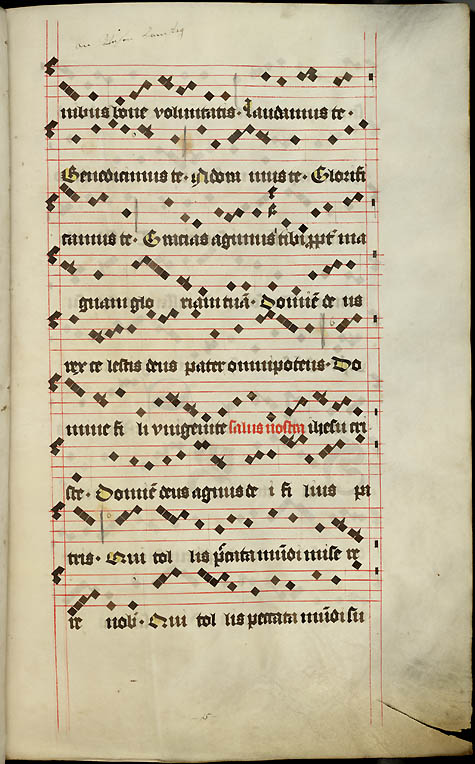 nibus bone voluntatis. Laudamus te.
Benedicimus te. Adora mus te. Glorifi
camus te. Gracias agimus tibi ꝓpt̄ ma
gnam glo riam tuā. Domīe de us
rex ce lestis deus pater omnipotens. Do
mine fi li vnigenite salus nostra ihesu cri
ste. Domīe deus agnus de i fi lius pa
tris. Qui tol lis pc̄cata mūdi mise re
re nob. Qui tol lis peccata mūdi su